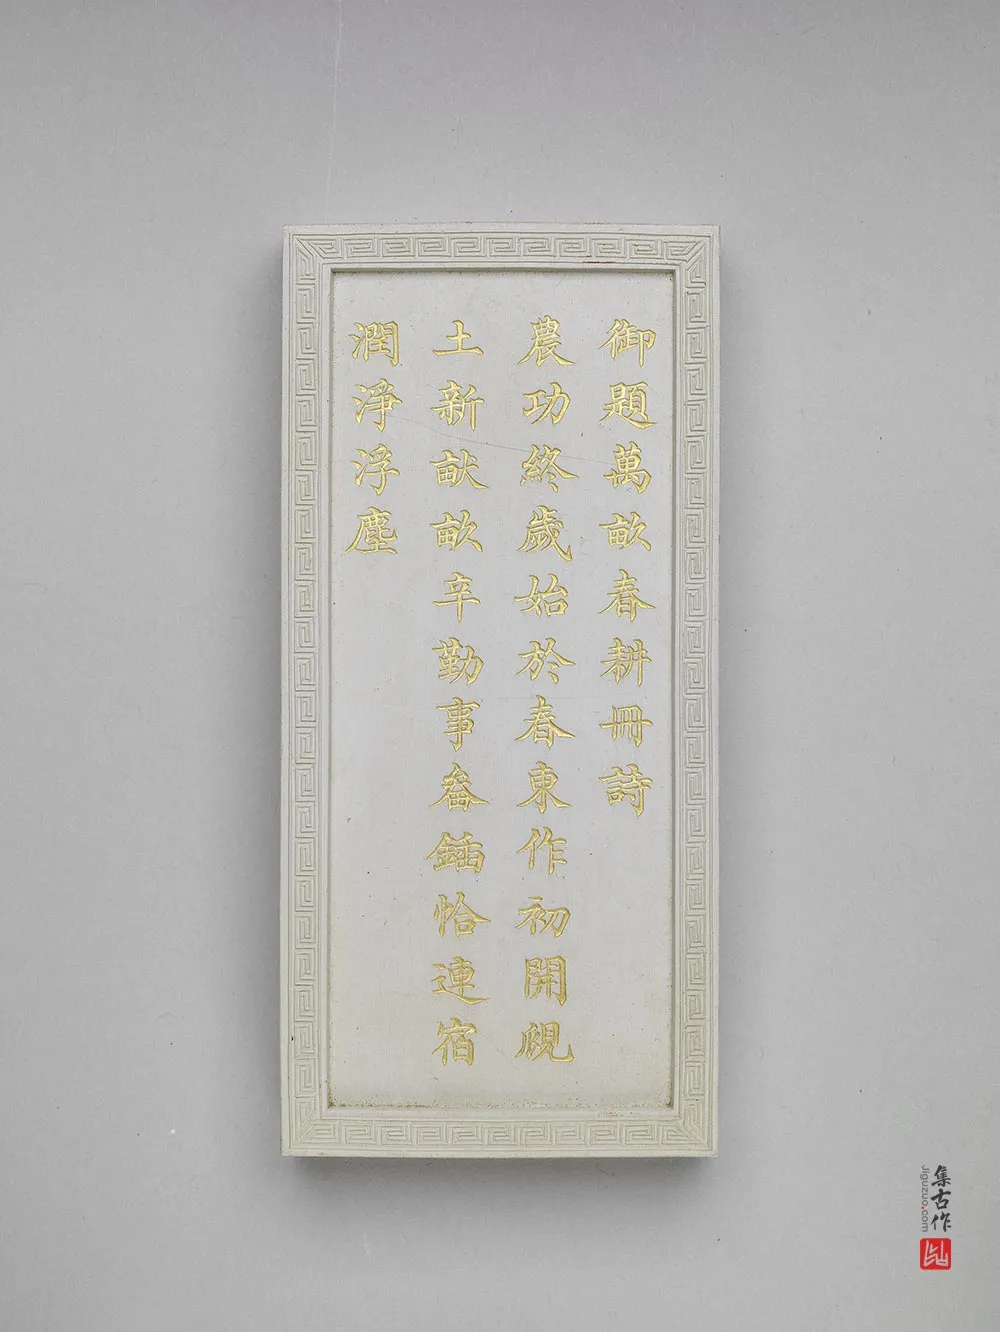 御題萬畝春耕冊詩
農功終歲始於春東作初開覛
土新畎畝辛勤事畚鍤恰連宿
潤淨浮塵
集古作
Jiguzuo.com